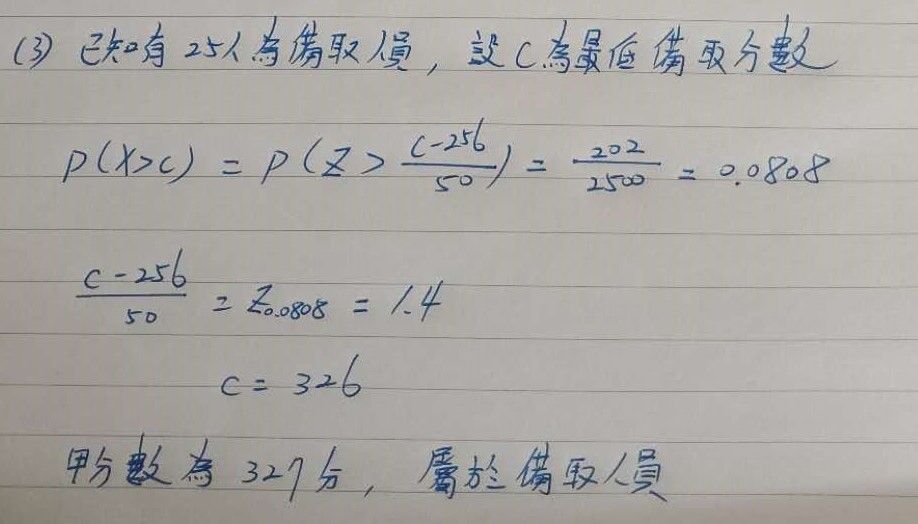 (3) 已知有25人為備取人員, 設C為最低備取分數
P(X>c) = P(Z > (c-256)/50) = 202/2500 = 0.0808
(c-256)/50 = Z0.0808 = 1.4
c = 326
甲分數為327分, 屬於備取人員